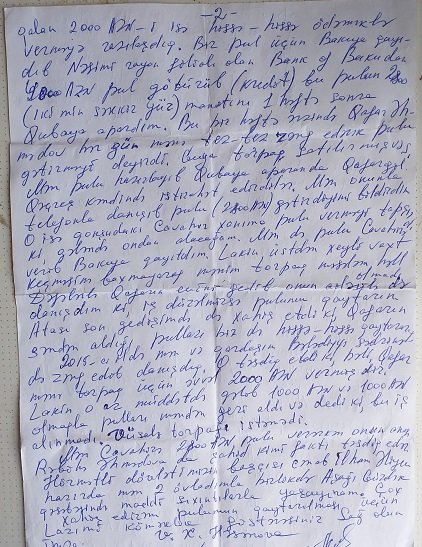 -2-
qalan 2000 AZN-i isə hissə-hissə ödəməklə
verməyə razılaşdıq. Biz pul üçün Bakıya qayı-
dıb Nəsimi rayon filialı olan Bank of Bakudan
AZN pul götürüb (kredit) bu pulun 2800
(iki min səkkiz yüz) manatını 1 həftə sonra
Qubaya apardım. Bu bir həftə ərzində Qafar Əh-
mədov hər gün mənə tez-tez zəng edərək pulu
gətirməyi deyirdi. torpaq satılır
Mən pulu hazırlayıb Qubaya aparanda Qafargil
Qəçrəş kəndində istirahət edirdilər. Mən onunla
telefonla danışıb pulu (2800 AZN) gətirdiyimi bildirdim
O isə qonşudakı Cavahir xanıma pulu verməyi tapşırdı
ki, gəlib ondan alacağam. Mən də pulu Cavahirə
verib Bakıya qayıtdım. Lakin üstdən xeyli vaxt
keçməsinə baxmayaraq mənim torpaq məsələm həll
olmadı
Dəfələrlə Qafarın evinə gedib onun atası ilə də
danışdım ki, iş düzəlməyib pulumu qaytarın
Atası son gedişimdə də xahiş etdi ki, Qafarın
səndən aldığı pulları biz də hissə-hissə qaytaraq,
2015-ci ildə mən və qardaşım
də zəng edib danışdıq. O təsdiq etdi ki, bəli, Qafar
mənə torpaq üçün əvvəl 2000 AZN vermişdir.
Lakin o az müddətdə gəlib 1000 AZN və 1000 AZN
olmaqla pulları məndən geri aldı və dedi ki, bu iş
alınmadı. Vüsalə torpağı istəmədi.
Mən Cavahirə 2800 AZN pulu verəndə onun
Əhmədova da şahid kimi faktı təsdiq edir
Hörmətli dövlətimizin başçısı cənab İlham Əliyev
hazırda mən 2 övladımla birlikdə
maddi sıxıntılarla yaşayıram. Çox
xahiş edirəm pulumun qaytarılması üçün
Lazımi köməklik göstərəsiniz. Sağ olun
V. X. Həsənova